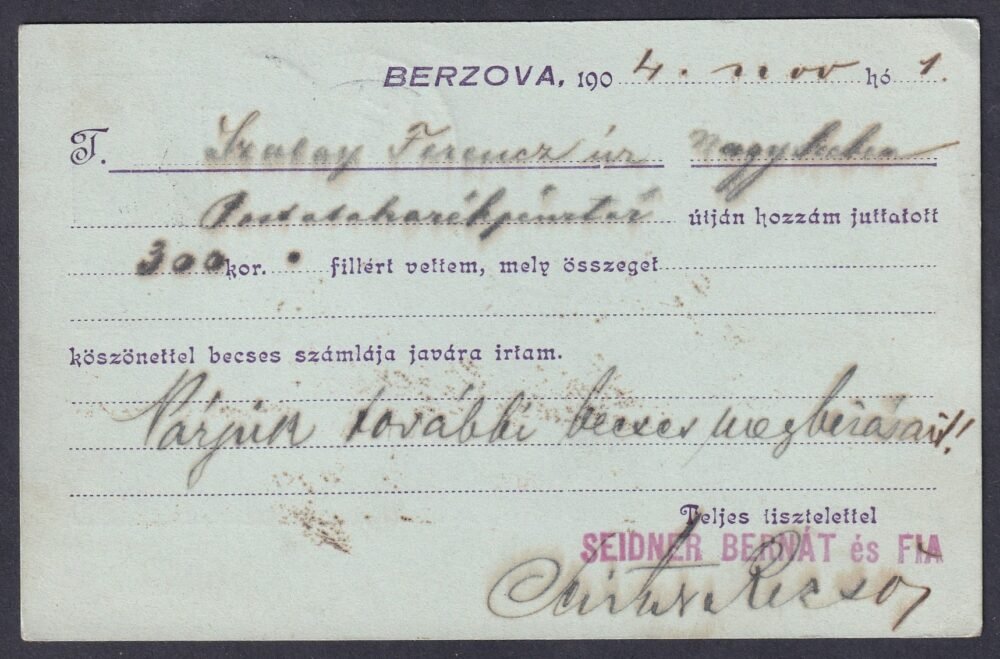 BERZOVA, 1904. nov hó 1.
T. Szalay Ferencz úr
Postatakarékpénztár útján hozzám juttatott
300 kor. fillért vettem, mely összeget
köszönettel becses számlája javára irtam.
Várjuk további becses megbizásait!
Teljes tisztelettel
SEIDNER BERNÁT és FIA